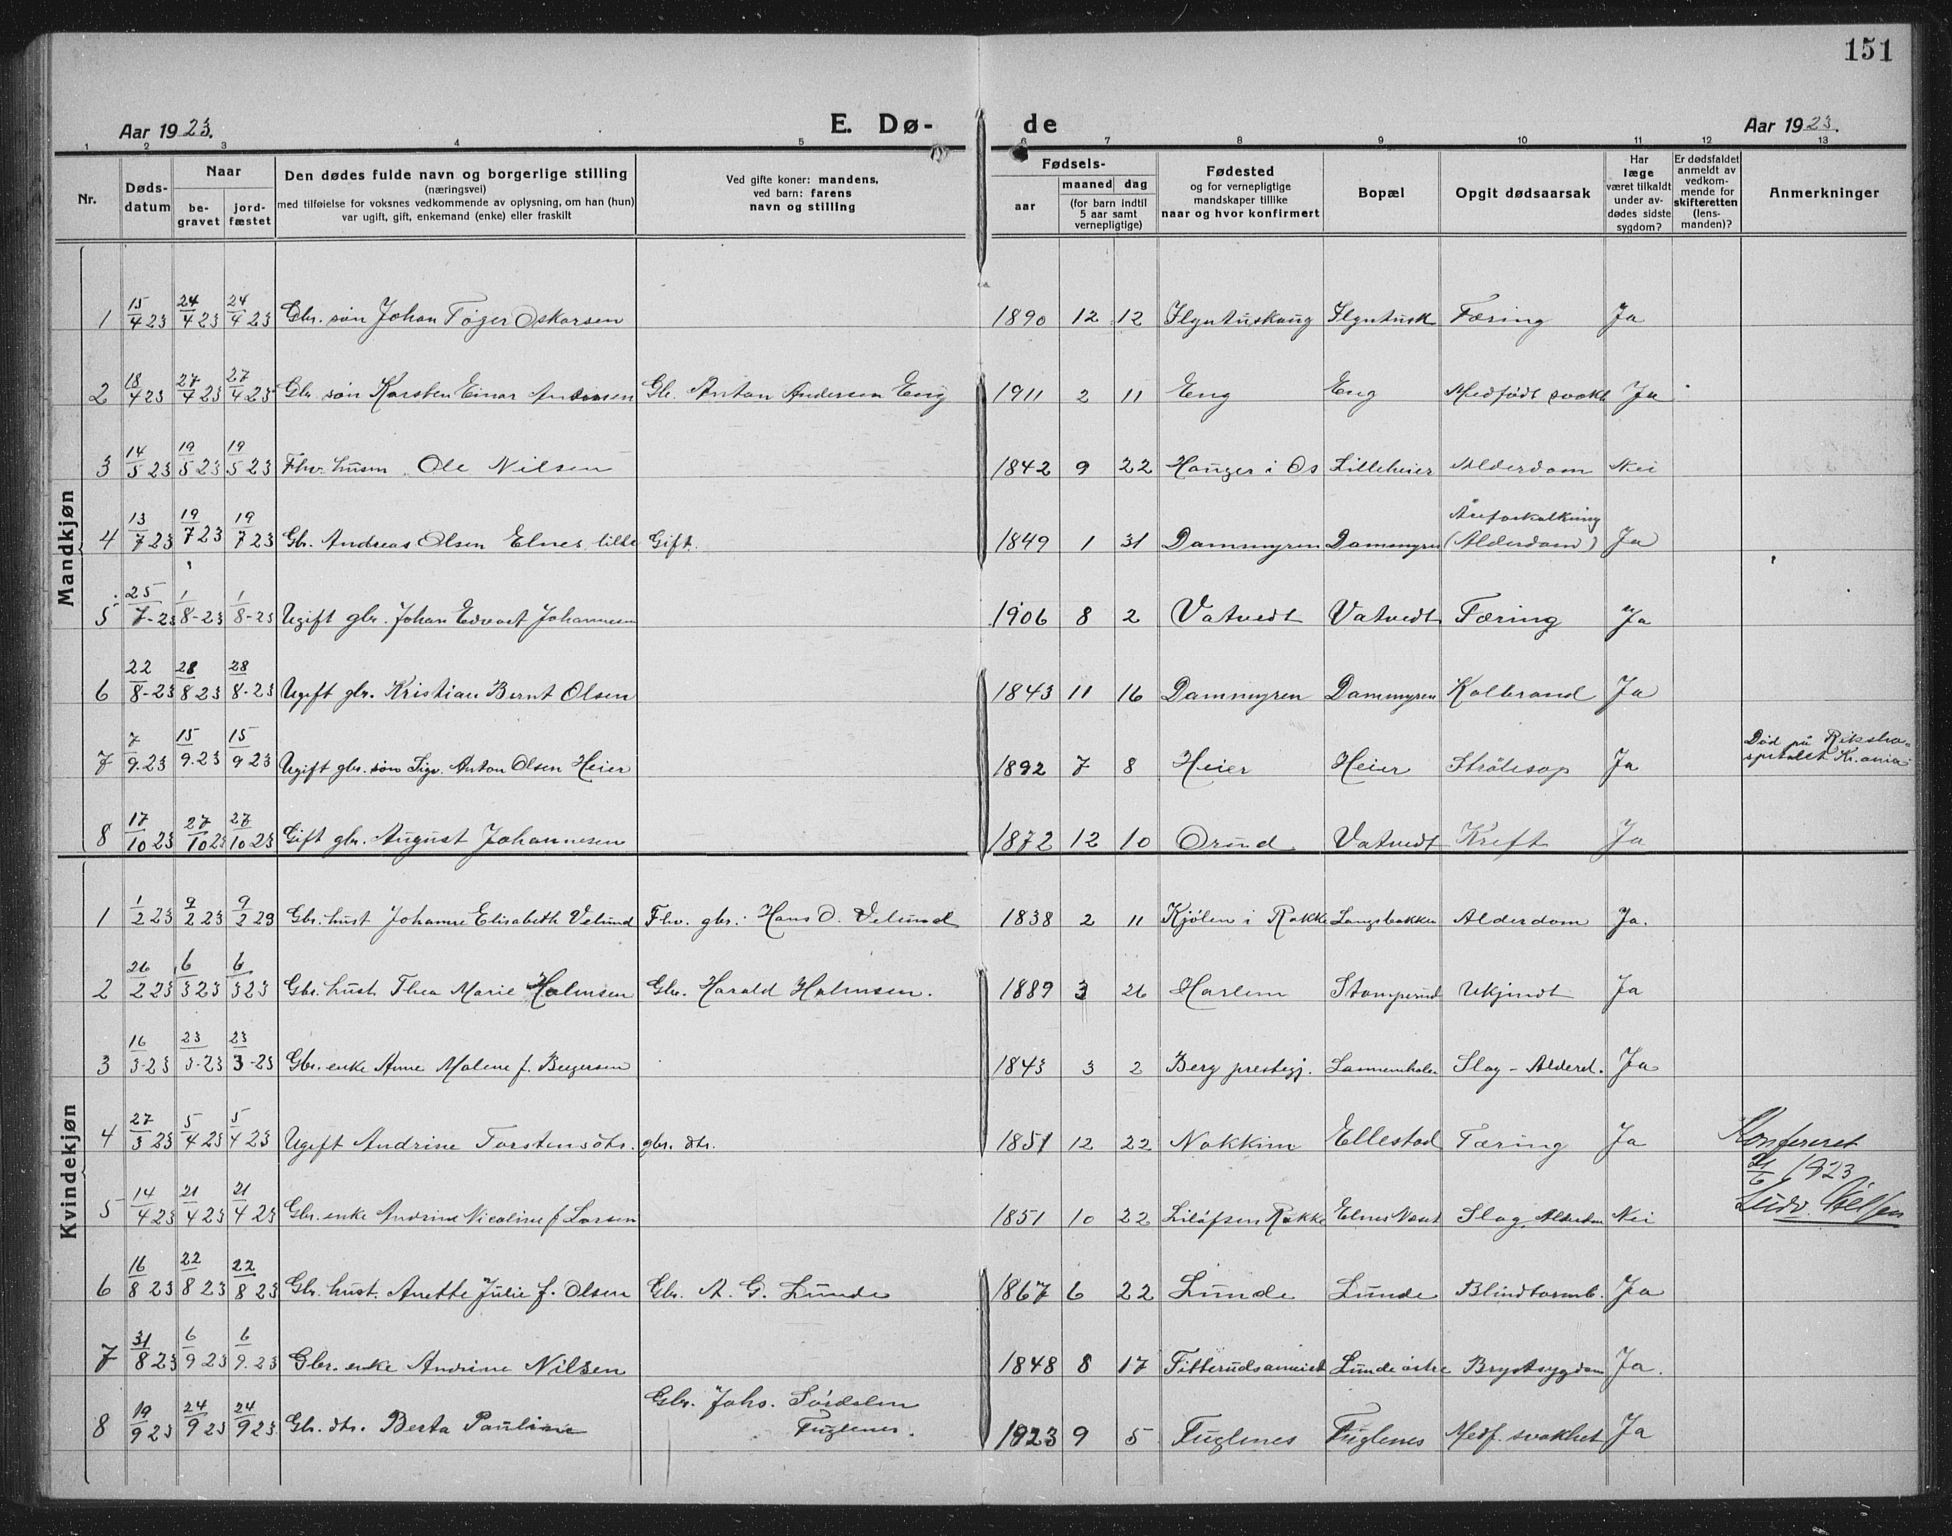 151
Aar 1923. E. Dø- de Aar 1923.
1 2 3 4 5 6 7 8 9 10 11 12 13
Nr.
Døds-
datum
Naar
be-
gravet
jord-
fæstet
Den dødes fulde navn og borgerlige stilling
(næringsvei)
med tilføielse for voksnes vedkommende av oplysning, om han (hun)
var ugift, gift, enkemand (enke) eller fraskilt
Ved gifte koner: mandens,
ved barn: farens
navn og stilling
Fødsels-
aar
maaned dag
(for barn indtil
5 aar samt
vernepligtige)
Fødested
og for vernepligtige
mandskaper tillike
naar og hvor konfirmert
Bopæl
Opgit dødsaarsak
Har
læge
været tilkaldt
under av-
dødes sidste
sygdom?
Er dødsfaldet
anmeldt av
vedkom-
mende for
skifteretten
(lens-
manden)?
Anmerkninger
Mandkjøn
1 15/4 23 24/4 23 24/4 23 Gbr. søn Johan Tøger Oskarsen 1890 12 12 Færing Ja
2 18/4 23 27/4 23 27/4 23 Gbr. søn Karsten Einar Andersen Gb. Anton Andersen Eng 1911 2 11 Eng Eng Medfødt svakh Ja
3 14/5 23 19/5 23 19/5 23 Fhv. husm. Ole Nilsen 1842 9 22 Hauger i Os Lilleheier Alderdom Nei
4 13/7 23 19/7 23 19/7 23 Gb. Andreas Olsen Elnes lille Gift. 1849 1 31 Dammyren Dammyren Åreforkalkning
(Alderdom) Ja
5 25/7-23 1/8-23 1/8-23 Ugift gbr. Johan Edvart Johannesen 1906 8 2 Vatvedt Vatvedt Færing Ja
6 22/8-23 28/8 23 28/8-23 Ugift gbr. Kristian Bernt Olsen 1843 11 16 Dammyren Dammyren Kolbrand Ja
7 7/9.23 15/9.23 15/9 23 Ugift gbr. søn Sigv. Anton Olsen Heier 1892 7 8 Heier Heier Strålesop Ja Død på Riksho-
spitalet Kr.ania
8 17/10 23 27/10 23 27/10 23 Gift gbr. August Johannesen 1872 12 10 Orud Vatvedt Kreft Ja
Kvindekjøn
1 1/2 23 9/2 23 9/2 23 Gbr. hust Johanne Elisabeth Velund Fhv. gbr: Hans O. Velund 1838 2 11 Kjølen i Rakke Langsbakken Alderdom Ja.
2 26/2 23 6/3 23 6/3 23 Gbr. hust Thea Marie Holmsen Gbr. Harald Holmsen. 1889 3 26 Harlem Stomperud Ukjendt Ja
3 16/3-23 23/3-23 23/3-23 Gbr. enke Anne Malene f. Bergersen 1843 3 2 Berg prestegj. Slag - Alderd. Ja
4 27/3 23 5/4 23 5/4 23 Ugift Andrine Torstensdtr. gbr. dtr. 1851 12 22 Nokkim Ellestad Færing Ja Konfereret
21/6 1923
5 14/4 23 21/4 23 21/4 23 Gbr. enke Andrine Nicoline f Larsen 1851 10 22 Rakke Elnes Slag, Nei Ludv.
6 16/8 23 22/8 23 22/8 23 Gbr. hust. Anette Julie f. Olsen Gbr. A. G. Lunde 1867 6 22 Lunde Lunde Blindtarmb. Ja
7 31/8 23 6/9 23 6/9.23 Gbr. enke Andrine Nilsen 1848 8 17 Lunde østre Brystsygdom Ja.
8 19/9 23 24/9 23 24/9 23 Gb. dtr. Berta Pauline Gbr. Johs. Sørdalen
Fuglenes. 1923 9 5 Fuglenes Fuglenes Medf. svakhet Ja